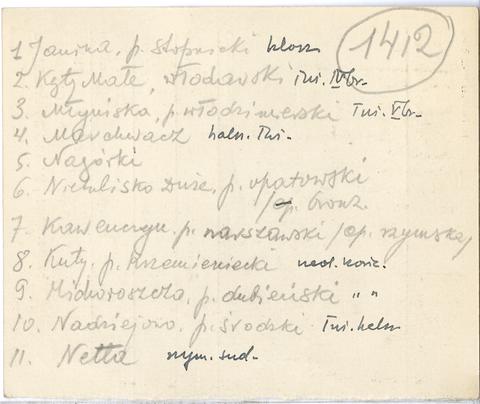 1412
1 Janina, p. stopnicki
2. Kąty Małe, włodawski Tni. IVbr-
3. Młyniska, p. włodzimierski Tni. Vbr-
4. Marchwacz hals. Tni-
5. Nagórki
6. Niemlisko Duże, p. opatowski
/ep. bronz.
7. Kawenczyn. p. warszawski /ep. rzymska/
8. Kuty. p. Krzemieniecki neol. kość.
9. p. dubieński " "
10. Nadziejowo. p. średzki Tni. hals
11. Netta rzym. sud-